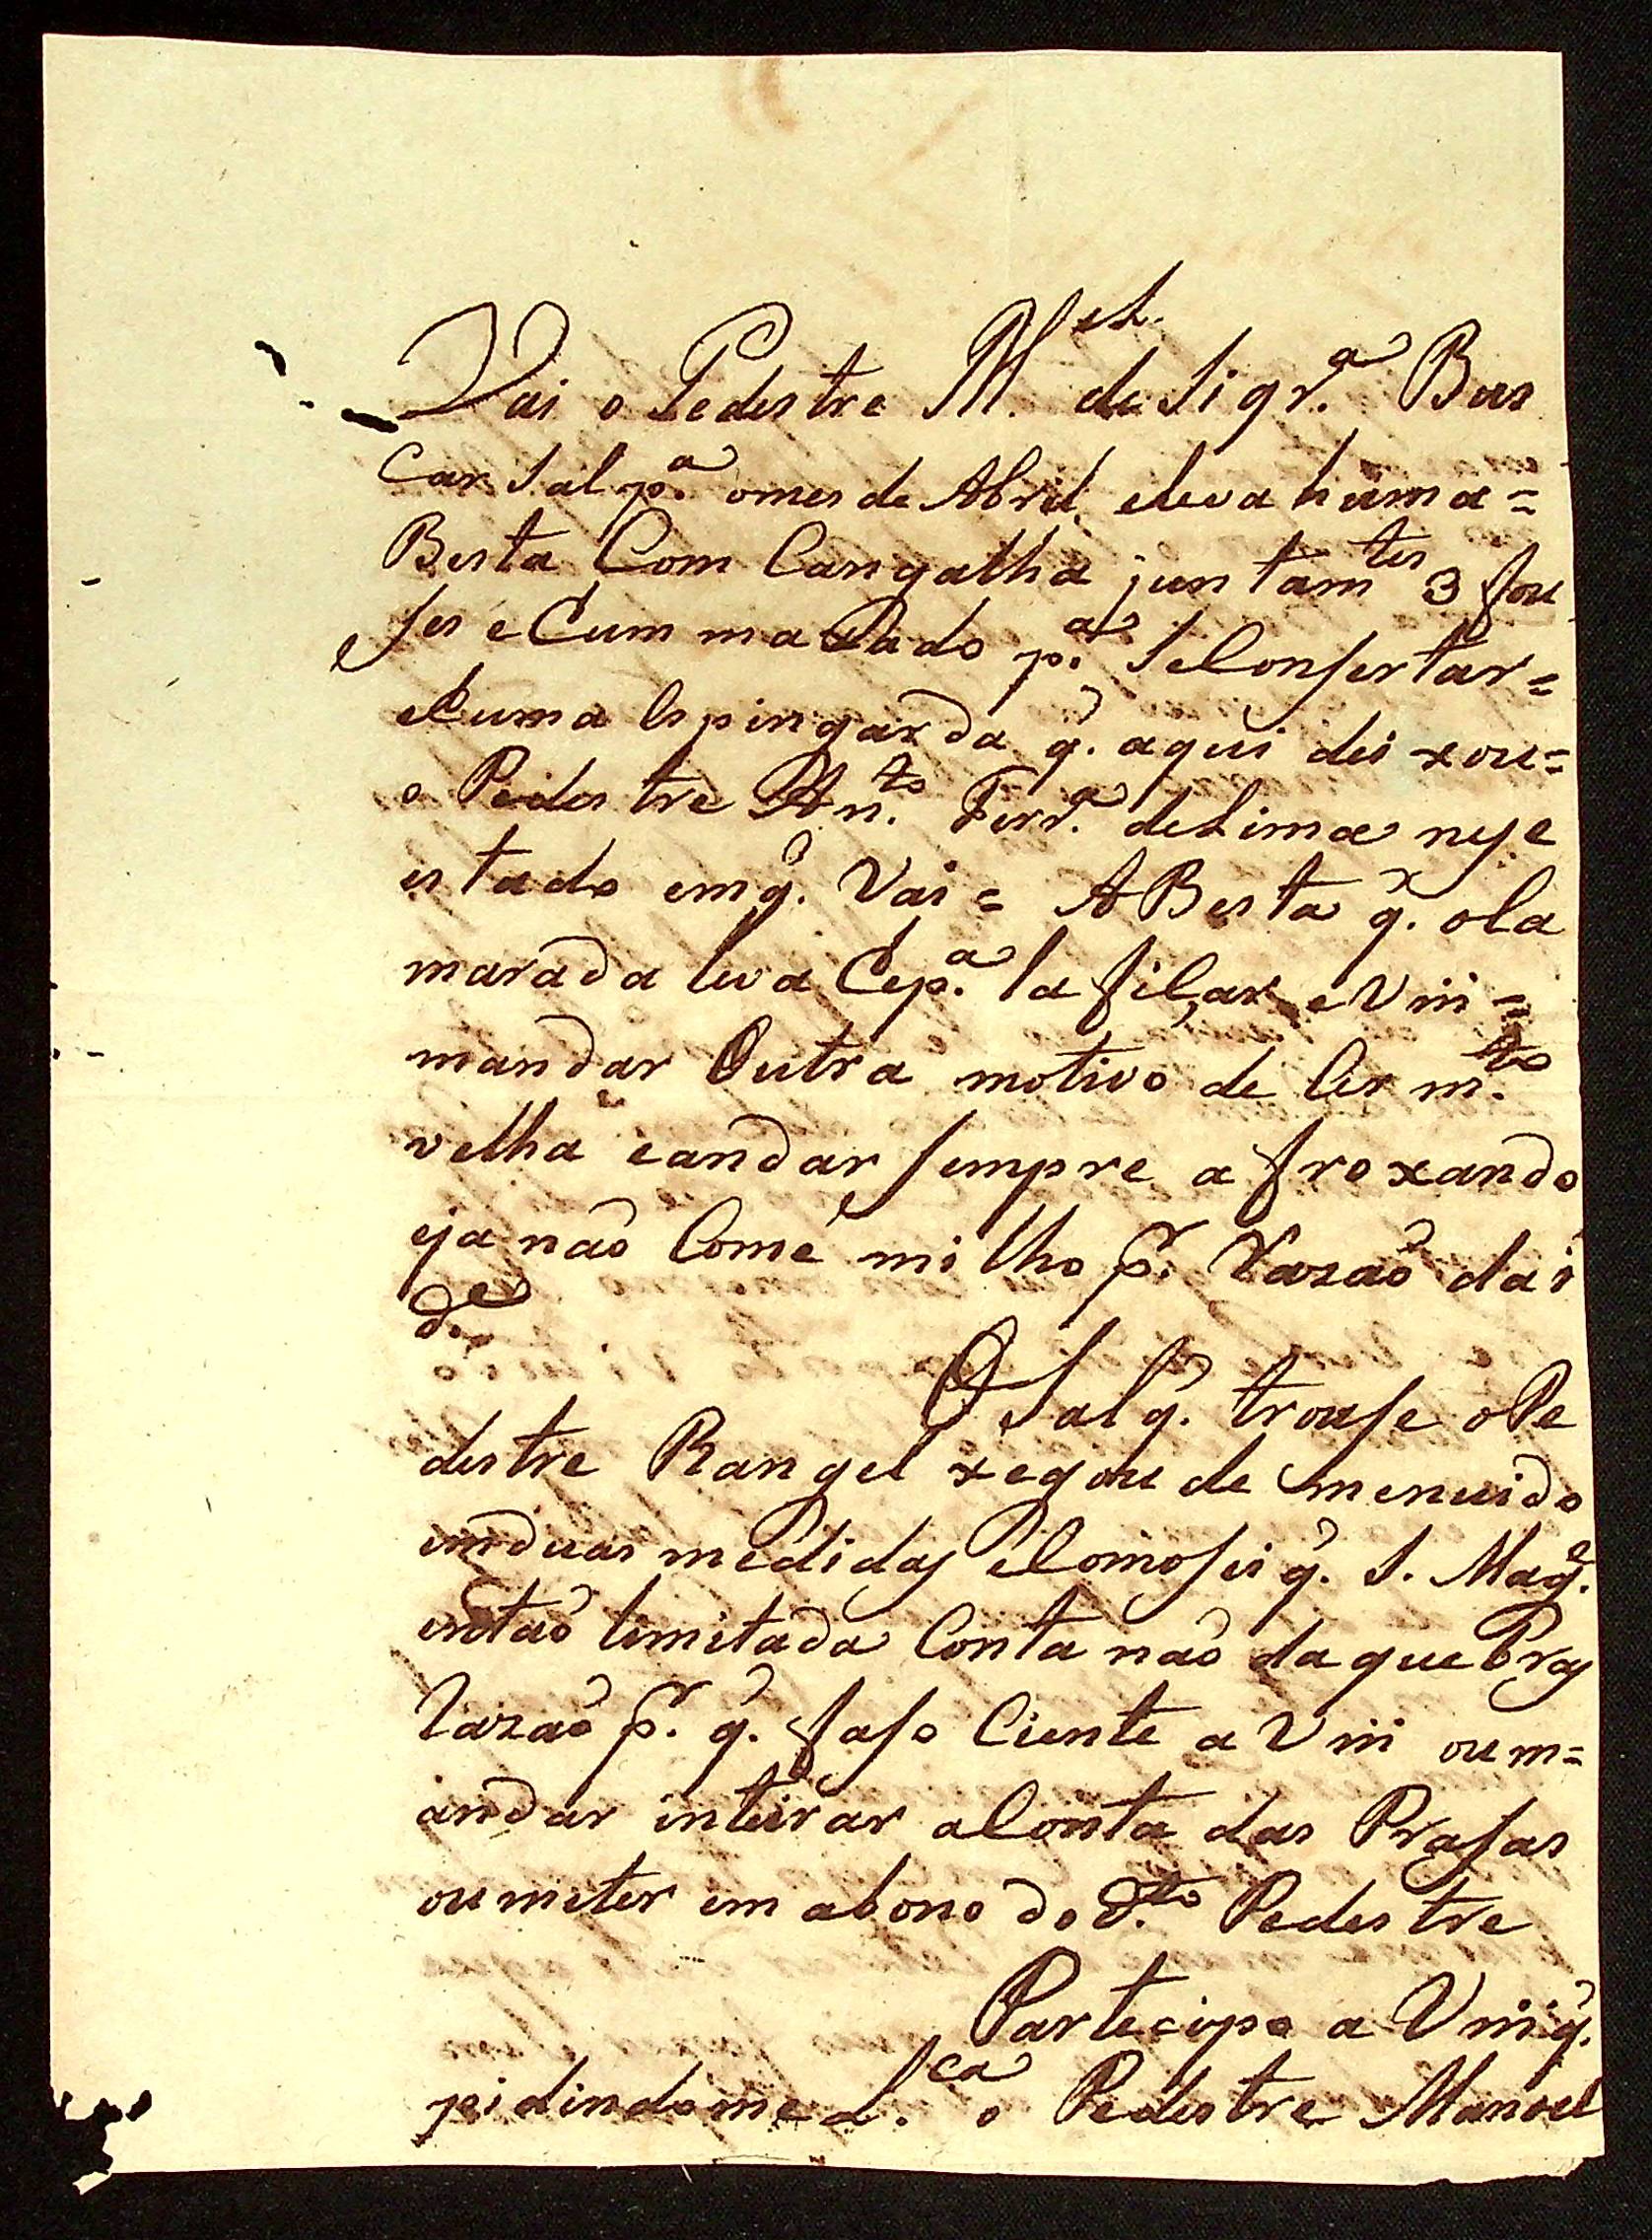 Vai o Pedestre M.el de Siqr.ª Bus
Car Sal p.ª omes de Abril eleva húma=
Besta Com Cangalha juntam.tes 3 fou
ses e Cum maxado p.ª se Consertar=
eCuma Espingarda q. aqui deixou=
o Pedestre Ant.º Ferr.ª deLima nese
estado emq. Vai= ABesta q. oCa
marada leva Cep.ª la ficar e Vm=
mandar Outra motivo de Cer m.to
velha eandar sempre afroxando
eja não Come milho p.r Razão dai
d.e
O Sal q. trouse oPe
destre Rangel xegou de menuido
emduas medidas eComo sei q. S. Mag.e
entaõ limitada Conta naõ da quebras
Razaõ p.r q. faso Ciente a Vm oum=
andar inteirar aConta das Prasas
oumeter em abono do d.to Pedestre
Partecipo a Vm q.
pidindome L.ca o Pedestre Manoel